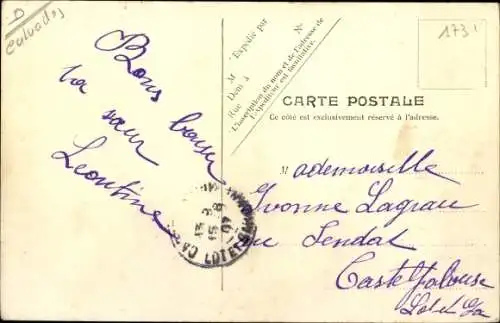 D
Calvados
1731
Bons baisers
ta sœur
Leontine
Expédié par
M
Demt à
Rue
N°
L'inscription du nom et de l'adresse de
l'Expéditeur est facultative.
CARTE POSTALE
Ce côté est exclusivement réservé à l'adresse.
Mademoiselle
Yvonne Lagrau
rue Tendat
Casteljalouse
Lot et Ga
LOT ET